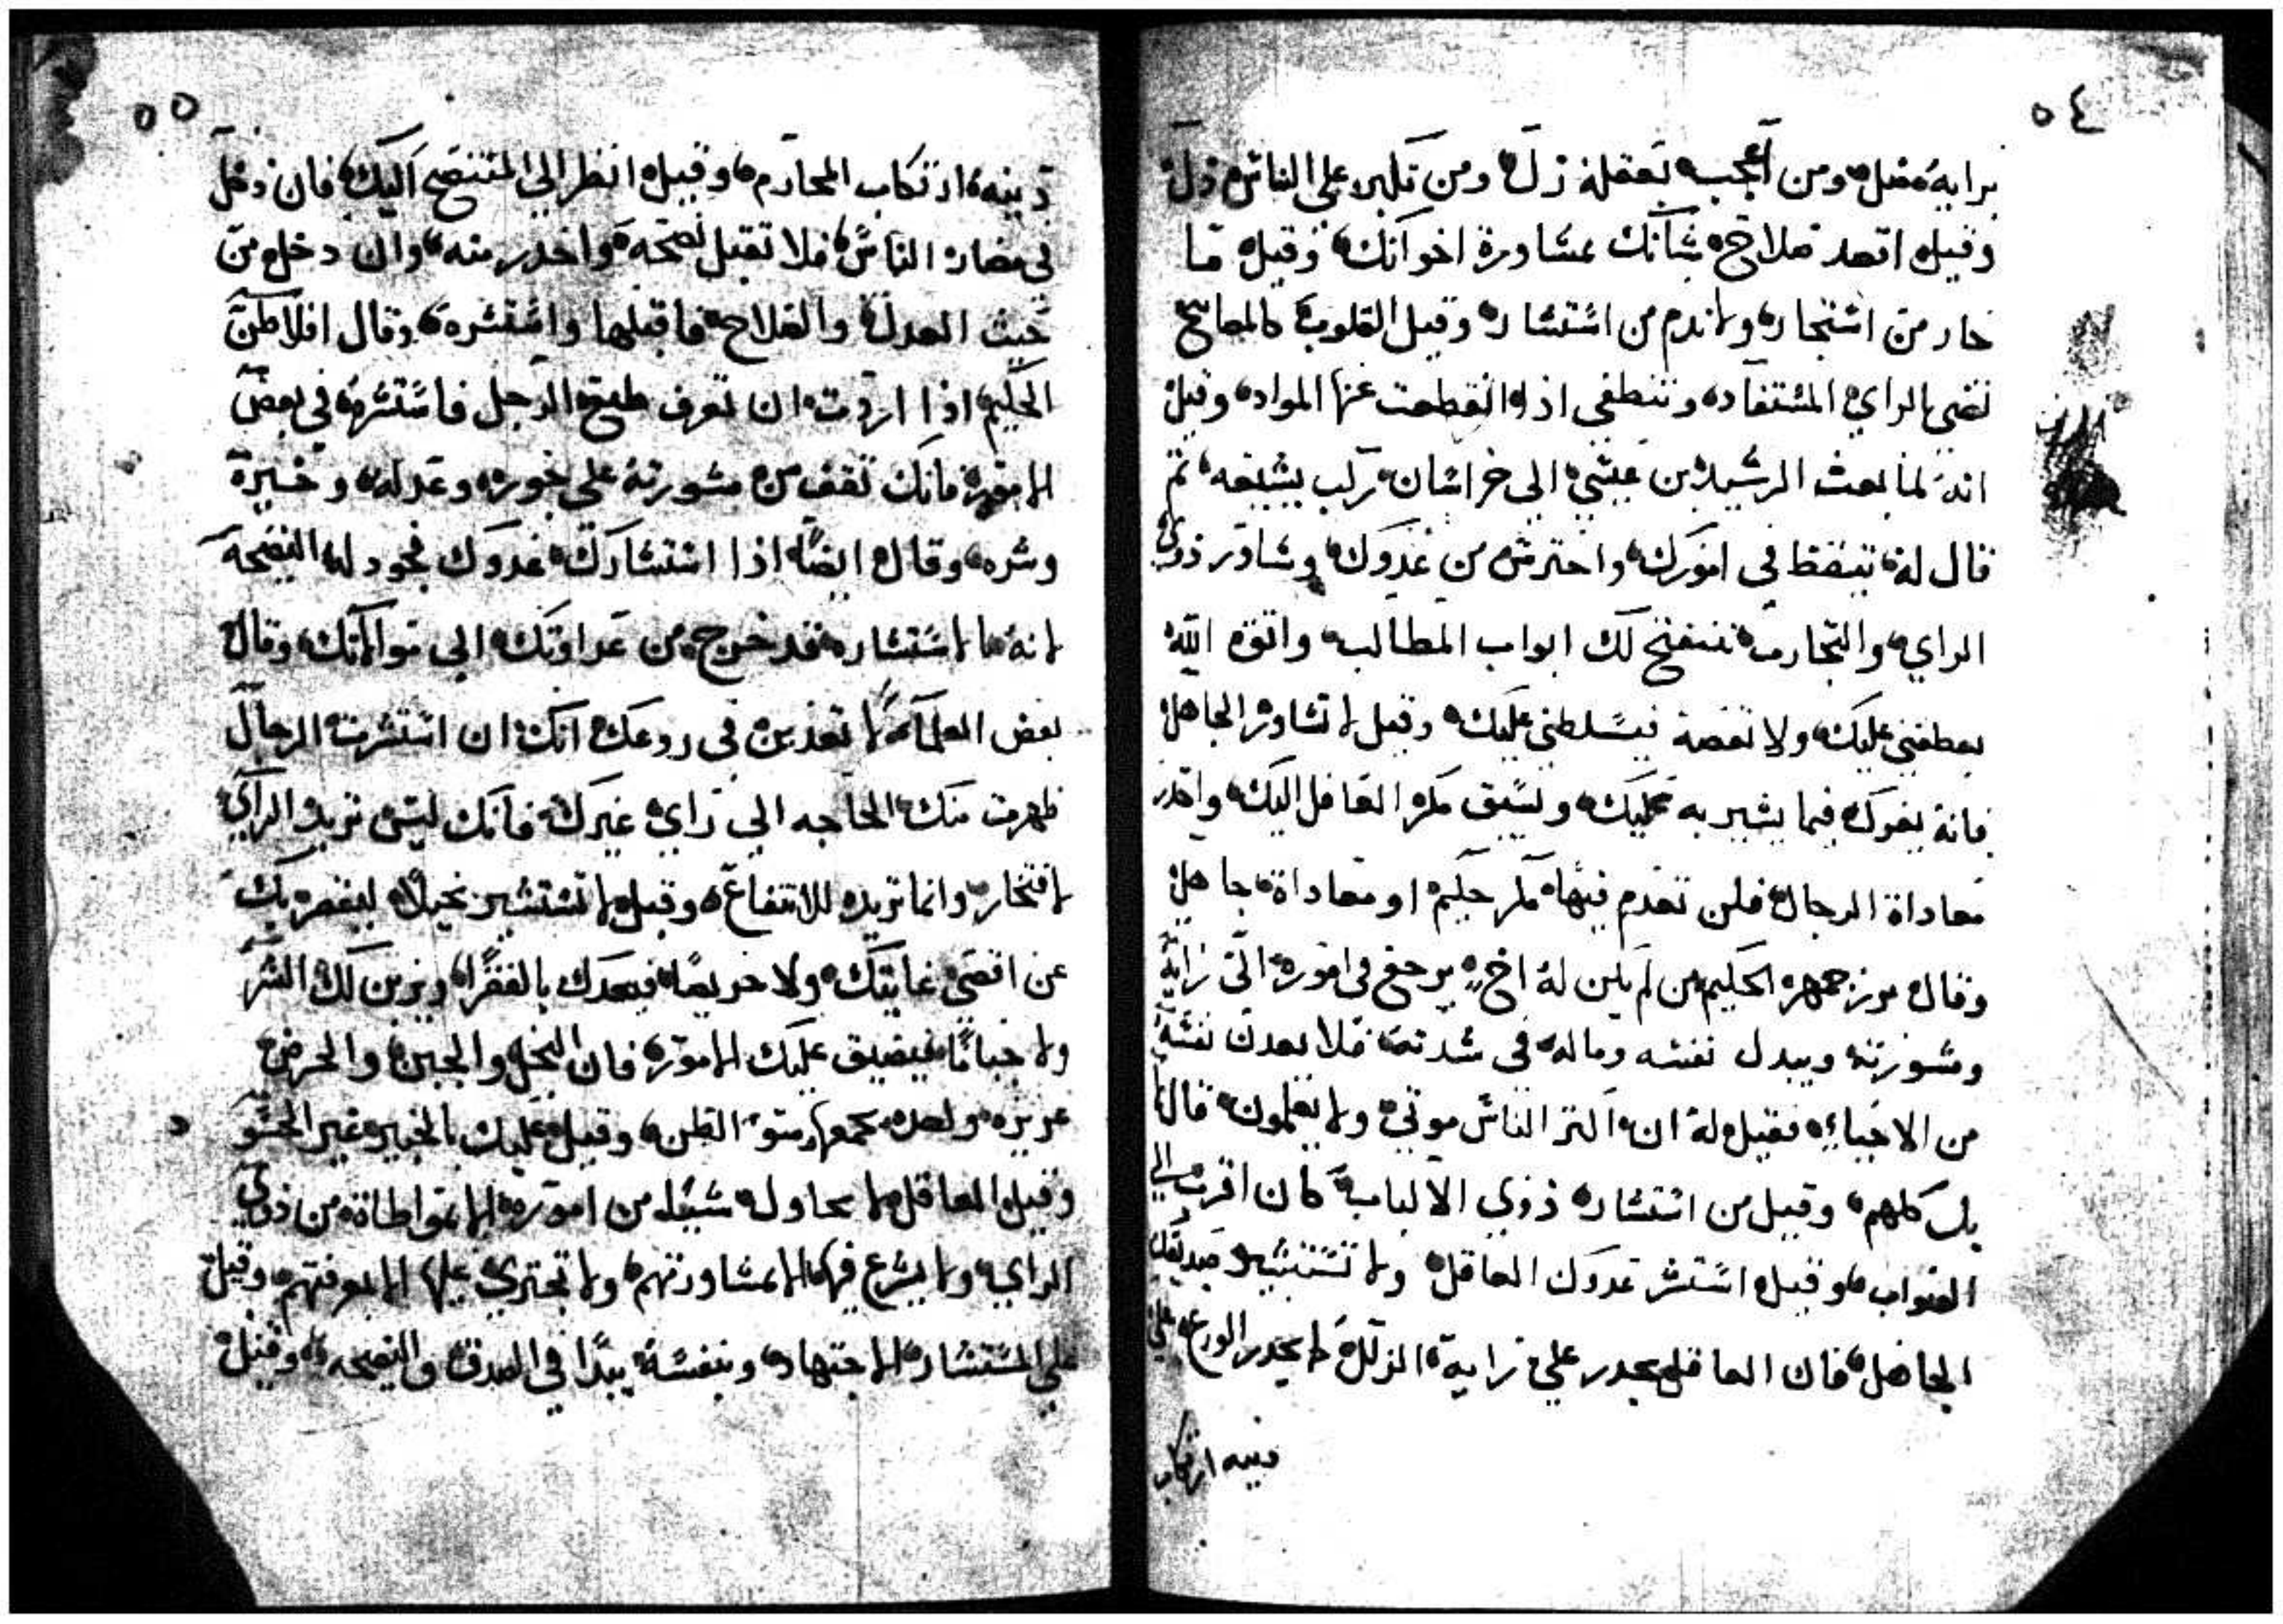 ٥٤
برايه ضل ومن اعجب بعقله زل ومن تكبر على الناس ذل
وقيل اقصد صلاح شانك بمشاورة اخوانك وقيل ما
خار من استخار ولا ندم من استشار وقيل القلوب كالمصابيح
تضي بالراي المستفاد وتنطفي اذا انقطعت عنها المواد وقيل
انه لما بعث الرشيد بن عيسي الى خراسان ركب يشيعه ثم
قال له تيقظ في امورك واحترس من عدوك وشاور ذوي
الراي والتجارب تنفتح لك ابواب المطالب واتق الله
يعطفني عليك ولا تعصه فيسلطني عليك وقيل لا تشاور الجاهل
فانه يغرك فيما يشير به عليك ويسبق مكر العاقل اليك واحذر
معاداة الرجال فلن تعدم فيها مكر حكيم او معاداة جاهل
وقال بوزرجمهر الحكيم من لم يكن له اخ يرجع في اموره الى رايه
ومشورته ويبدل نفسه وماله في شدته فلا يعدن نفسه
من الاحياء فقيل له ان اكثر الناس موتى ولا يعلمون قال لا
بل كلهم وقيل من استشار ذوي الالباب كان اقرب الي
الصواب وقيل استشر عدوك العاقل ولا تستشير صديقك
الجاهل فان العاقل يحدر على رايه الزلل كما يحدر الورع على
دينه ارتكاب
٥٥
دينه ارتكاب المحارم وقيل انظر الي المتنصح اليك فان دخل
في مضار الناس فلا تقبل نصحه واحدر منه وان دخل من
حيث العدل والصلاح فاقبلها واستشره وقال افلاطن
الحكيم اذا اردت ان تعرف طبع الرجل فاستشره في بعض
الامور فانك تقف من مشورته على جوره وعدله وخيره
وشره وقال ايضا اذا استشارك عدوك فجود له النصيحه
لانه لما استشار فقد خرج من عداوتك الى موالاتك وقال
بعض العلماء لا تعذبن في روعك انك ان استشرت الرجال
ظهرت منك الحاجه الي راي غيرك فانك ليس تريد الراي
لافتخار وانما تريده للانتفاع وقيل لا تستشير بخيلا ليقصر بك
عن اقصى غايتك ولا حريصا فيعدك بالفقر ويزين لك الشر
ولا جبانا فيضيق عليك الامور فان البخل والجبن والحرص
غريزه واحده يجمعها سو الظن وقيل عليك بالخبير غير الحسو د
وقيل العاقل لا يحاول شيئا من اموره الا بمواطاة من ذوي
الراي ولا يشرع فيها الا بمشاورتهم ولا تجتري عليها الا بمعرفتهم وقيل
على المستشار الاجتهاد وبنفسه يبدا في الصدق والنصيحه وقيل